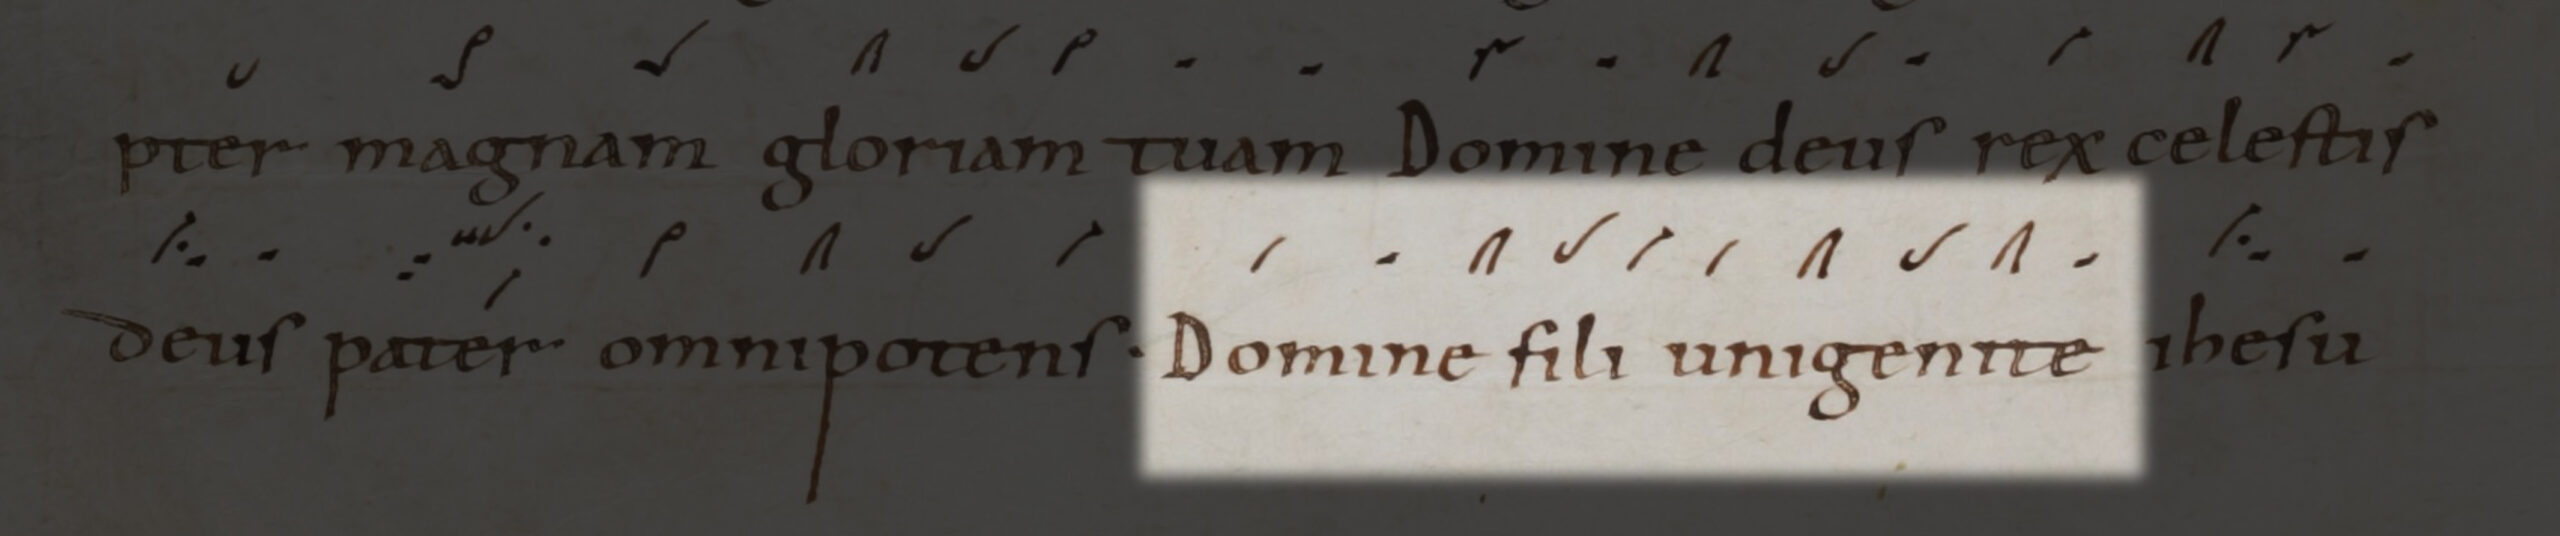 pter magnam gloriam tuam Domine deus rex celestis
deus pater omnipotens· Domine fili unigenite ihesu